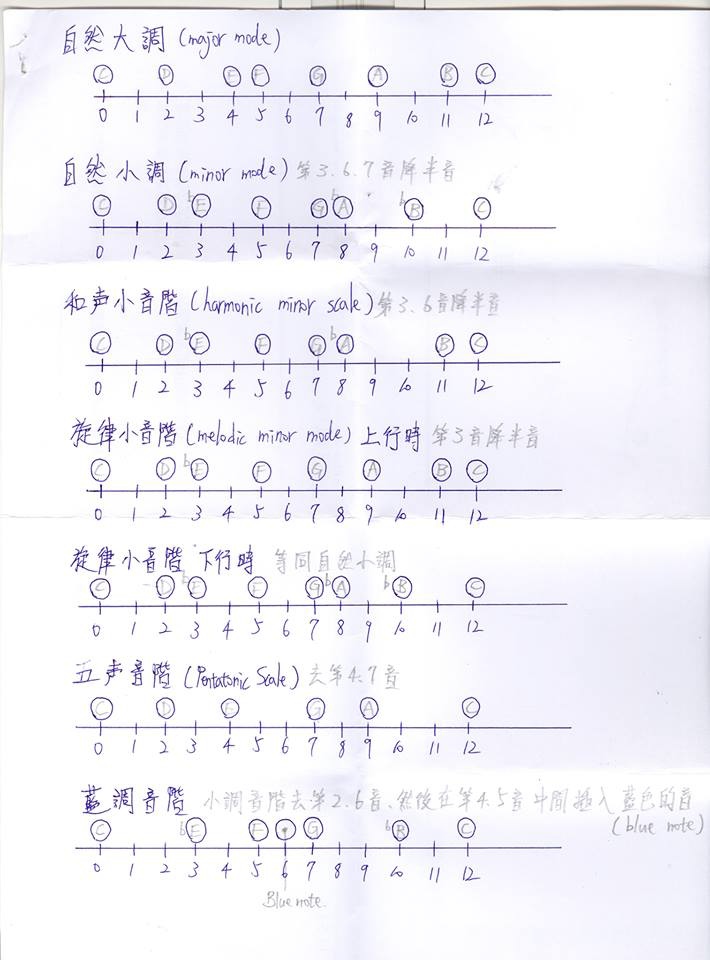 自然大調 (major mode)
C D E F G A B C
0 1 2 3 4 5 6 7 8 9 10 11 12
自然小調 (minor mode) 第3.6.7音降半音
C D bE F G bA bB C
0 1 2 3 4 5 6 7 8 9 10 11 12
和声小音階 (harmonic minor scale) 第3.6音降半音
C D bE F G bA B C
0 1 2 3 4 5 6 7 8 9 10 11 12
旋律小音階 (melodic minor mode) 上行時 第3音降半音
C D bE F G A B C
0 1 2 3 4 5 6 7 8 9 10 11 12
旋律小音階 下行時 等同自然小調
C D bE F G bA bB C
0 1 2 3 4 5 6 7 8 9 10 11 12
五声音階 (Pentatonic Scale) 去第4.7音
C D E G A C
0 1 2 3 4 5 6 7 8 9 10 11 12
藍調音階 小調音階去第2.6音、然後在第4.5音中間插入藍色的音
(blue note)
C bE F G bB C
0 1 2 3 4 5 6 7 8 9 10 11 12
Blue note.